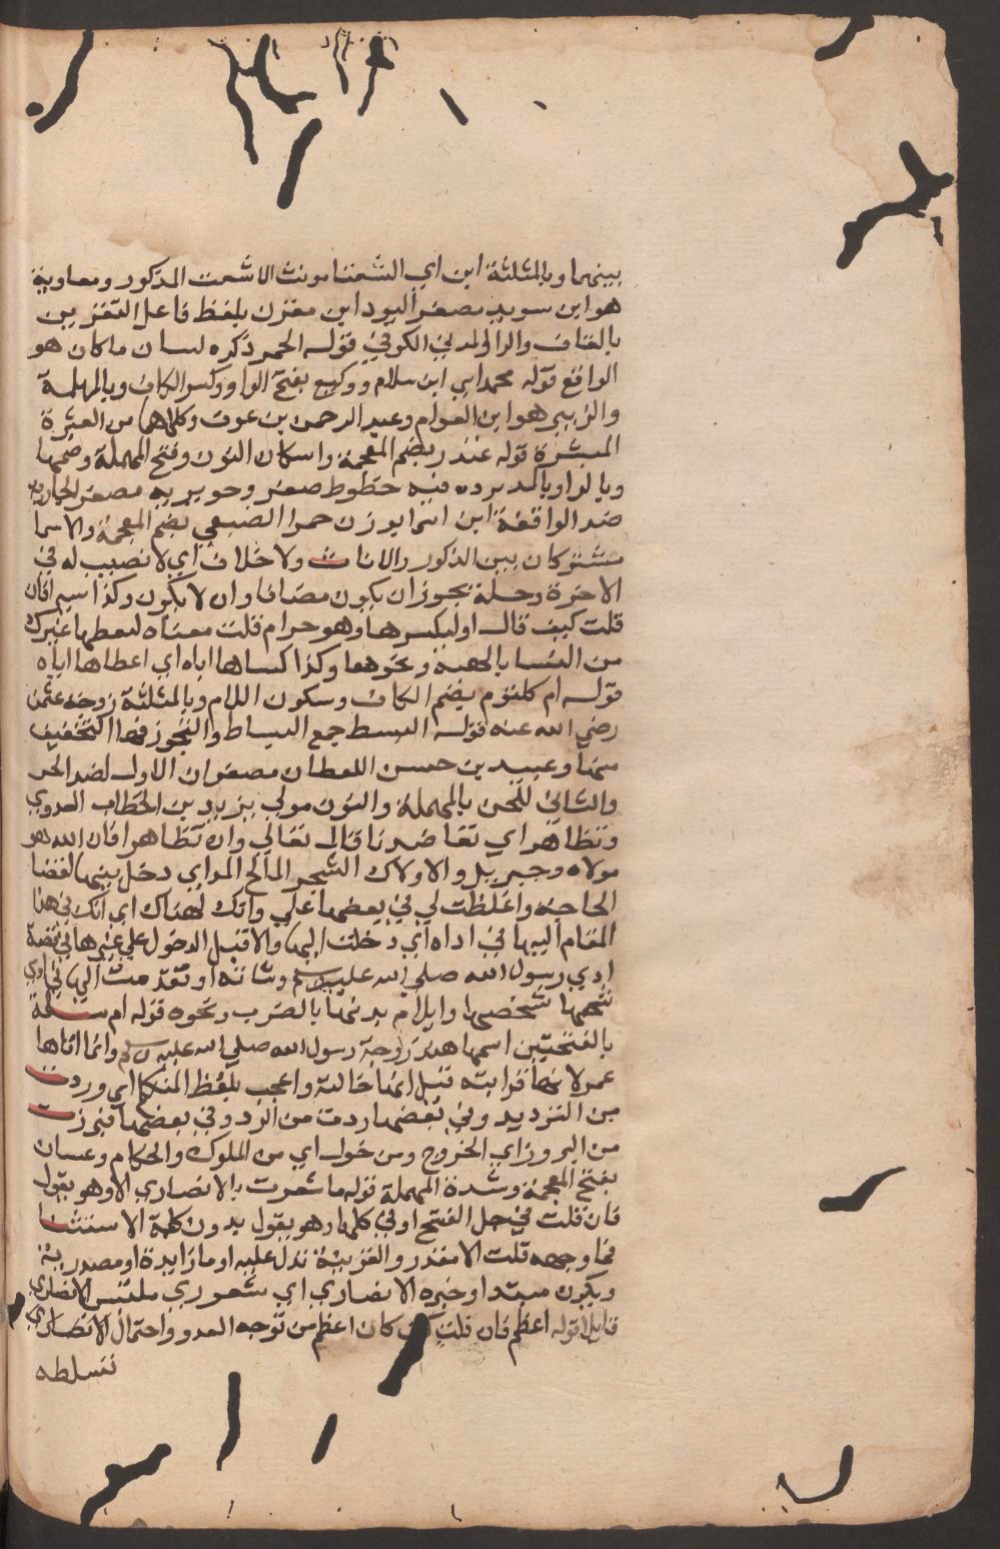 بينهما وبالمثلثة ابن ابي الشعثا مونث الاشعث المذكور ومعاوية
هو ابن سويد مصغر السود ابن مقرن بلفظ فاعل التقرين
بالقاف والرا المدني الكوفي قوله الحمر ذكره لبيان ما كان هو
الواقع قوله محمد اي ابن سلام ووكيع بفتح الواو وكسر الكاف وبالمهملة
والزبير هو ابن العوام وعبد الرحمن بن عوف وكلاهما من العشرة
المبشرة قوله غندر بضم المعجمة واسكان النون وفتح المهملة وضمها
وبالرا وبالمد برده فيه خطوط صفر وجويرية مصغر الجارية
ضد الواقفة ابن اسما بوزن حمرا الضبعي بضم المعجمة والاسما
مشتركان بين الذكور والاناث ولا خلاف اي لا نصيب له في
الاخرة وحلة يجوز ان يكون مضافا وان لا يكون وكذا سيرا فان
قلت كيف قال او ليكسوها وهو حرام قلت معناه ليعطها غيرك
من النسا بالهبة ونحوهما وكذا كساها اياه اي اعطاها اياه
قوله ام كلثوم بضم الكاف وسكون اللام وبالمثلثة زوجة عثمن
رضي الله عنه قوله البسط جمع البساط والتجوز فيها التخفيف
منها وعبيد بن حنين اللفظان مصغران الاول لضد الحر
والثاني للحن بالمهملة والنون مولى يزيد بن الخطاب العدوي
وتظاهر اي تعاضدنا قال تعالى وان تظاهرا فان الله هو
مولاه وجبريل والاولاك الشجر المالح المر اي دخل بينهما لقضا
الحاجة واغلظت لي في بعضها علي وانك لهناك اي انك في هذا
المقام اليها في اداه اي دخلت اليها والاقبل الدخول على غيرها في قصة
اذي رسول الله صلى الله عليه وسلم وشانه او تقدمت اليها في اذي
شخصها وايلام بدنها بالضرب ونحوه قوله ام سلمة
بالفتحتين اسمها هند زوجة رسول الله صلى الله عليه وسلم وانما اتاها
عمر لانها قرابته قيل انها خالته واعجب بلفظ المتكلم اي ورددت
من الترديد وفي بعضها ردت من الرد وفي بعضها فبرزت
من البروز اي الخروج ومن حول اي من الملوك والحكام وغسان
بفتح المعجمة وشدة المهملة قوله ما شعرت بالانصاري الا وهو يقول
فان قلت في جل الفتح او في كلها وهو يقول بدون كلمة الاستثنا
فما وجهه قلت الا مقدر والقرينة تدل عليه او ما زايدة او مصدرية
ويكون مبتدا وخبره الانصاري اي شعوري ملتبس الانصاري
قايلا قوله اعظم فان قلت كيف كان اعظم من توجه العدو واحتمال الانصاري
تسلطه